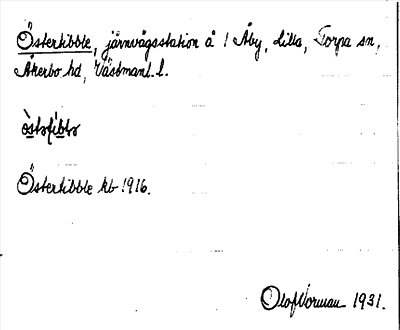 Österkibble, järnvägsstation å 1 Åby, Lilla, Torpa sn,
Åkerbo hd, Västmanl. l.
Österkibble kb 1916.
Olof Norman 1931.